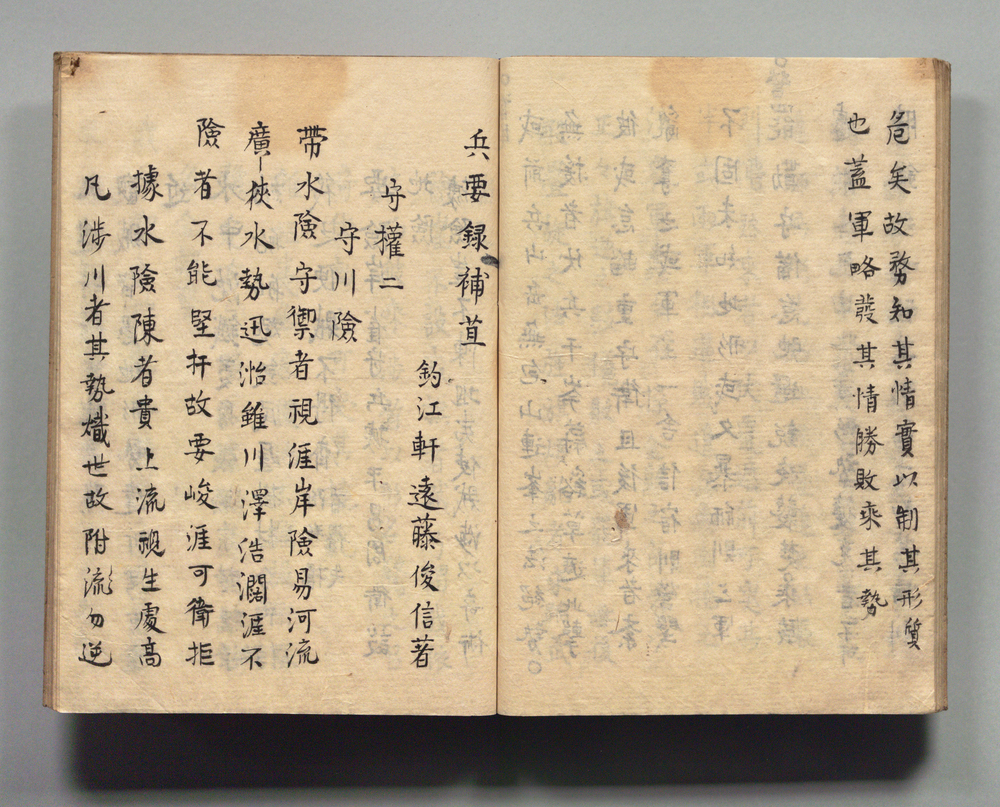 危矣故務知其情實以制其形質
也蓋軍略發其情勝敗乘其勢
兵要録補苴
釣江軒遠藤俊信著
守權二
守川險
帶水險守禦者視涯岸險易河流
廣狹水勢迅湁雖川澤浩濶涯不
險者不能堅扞故要峻涯可衛拒
據水險陳者貴上流視生處高
凡渉川者其勢熾世故附流勿逆